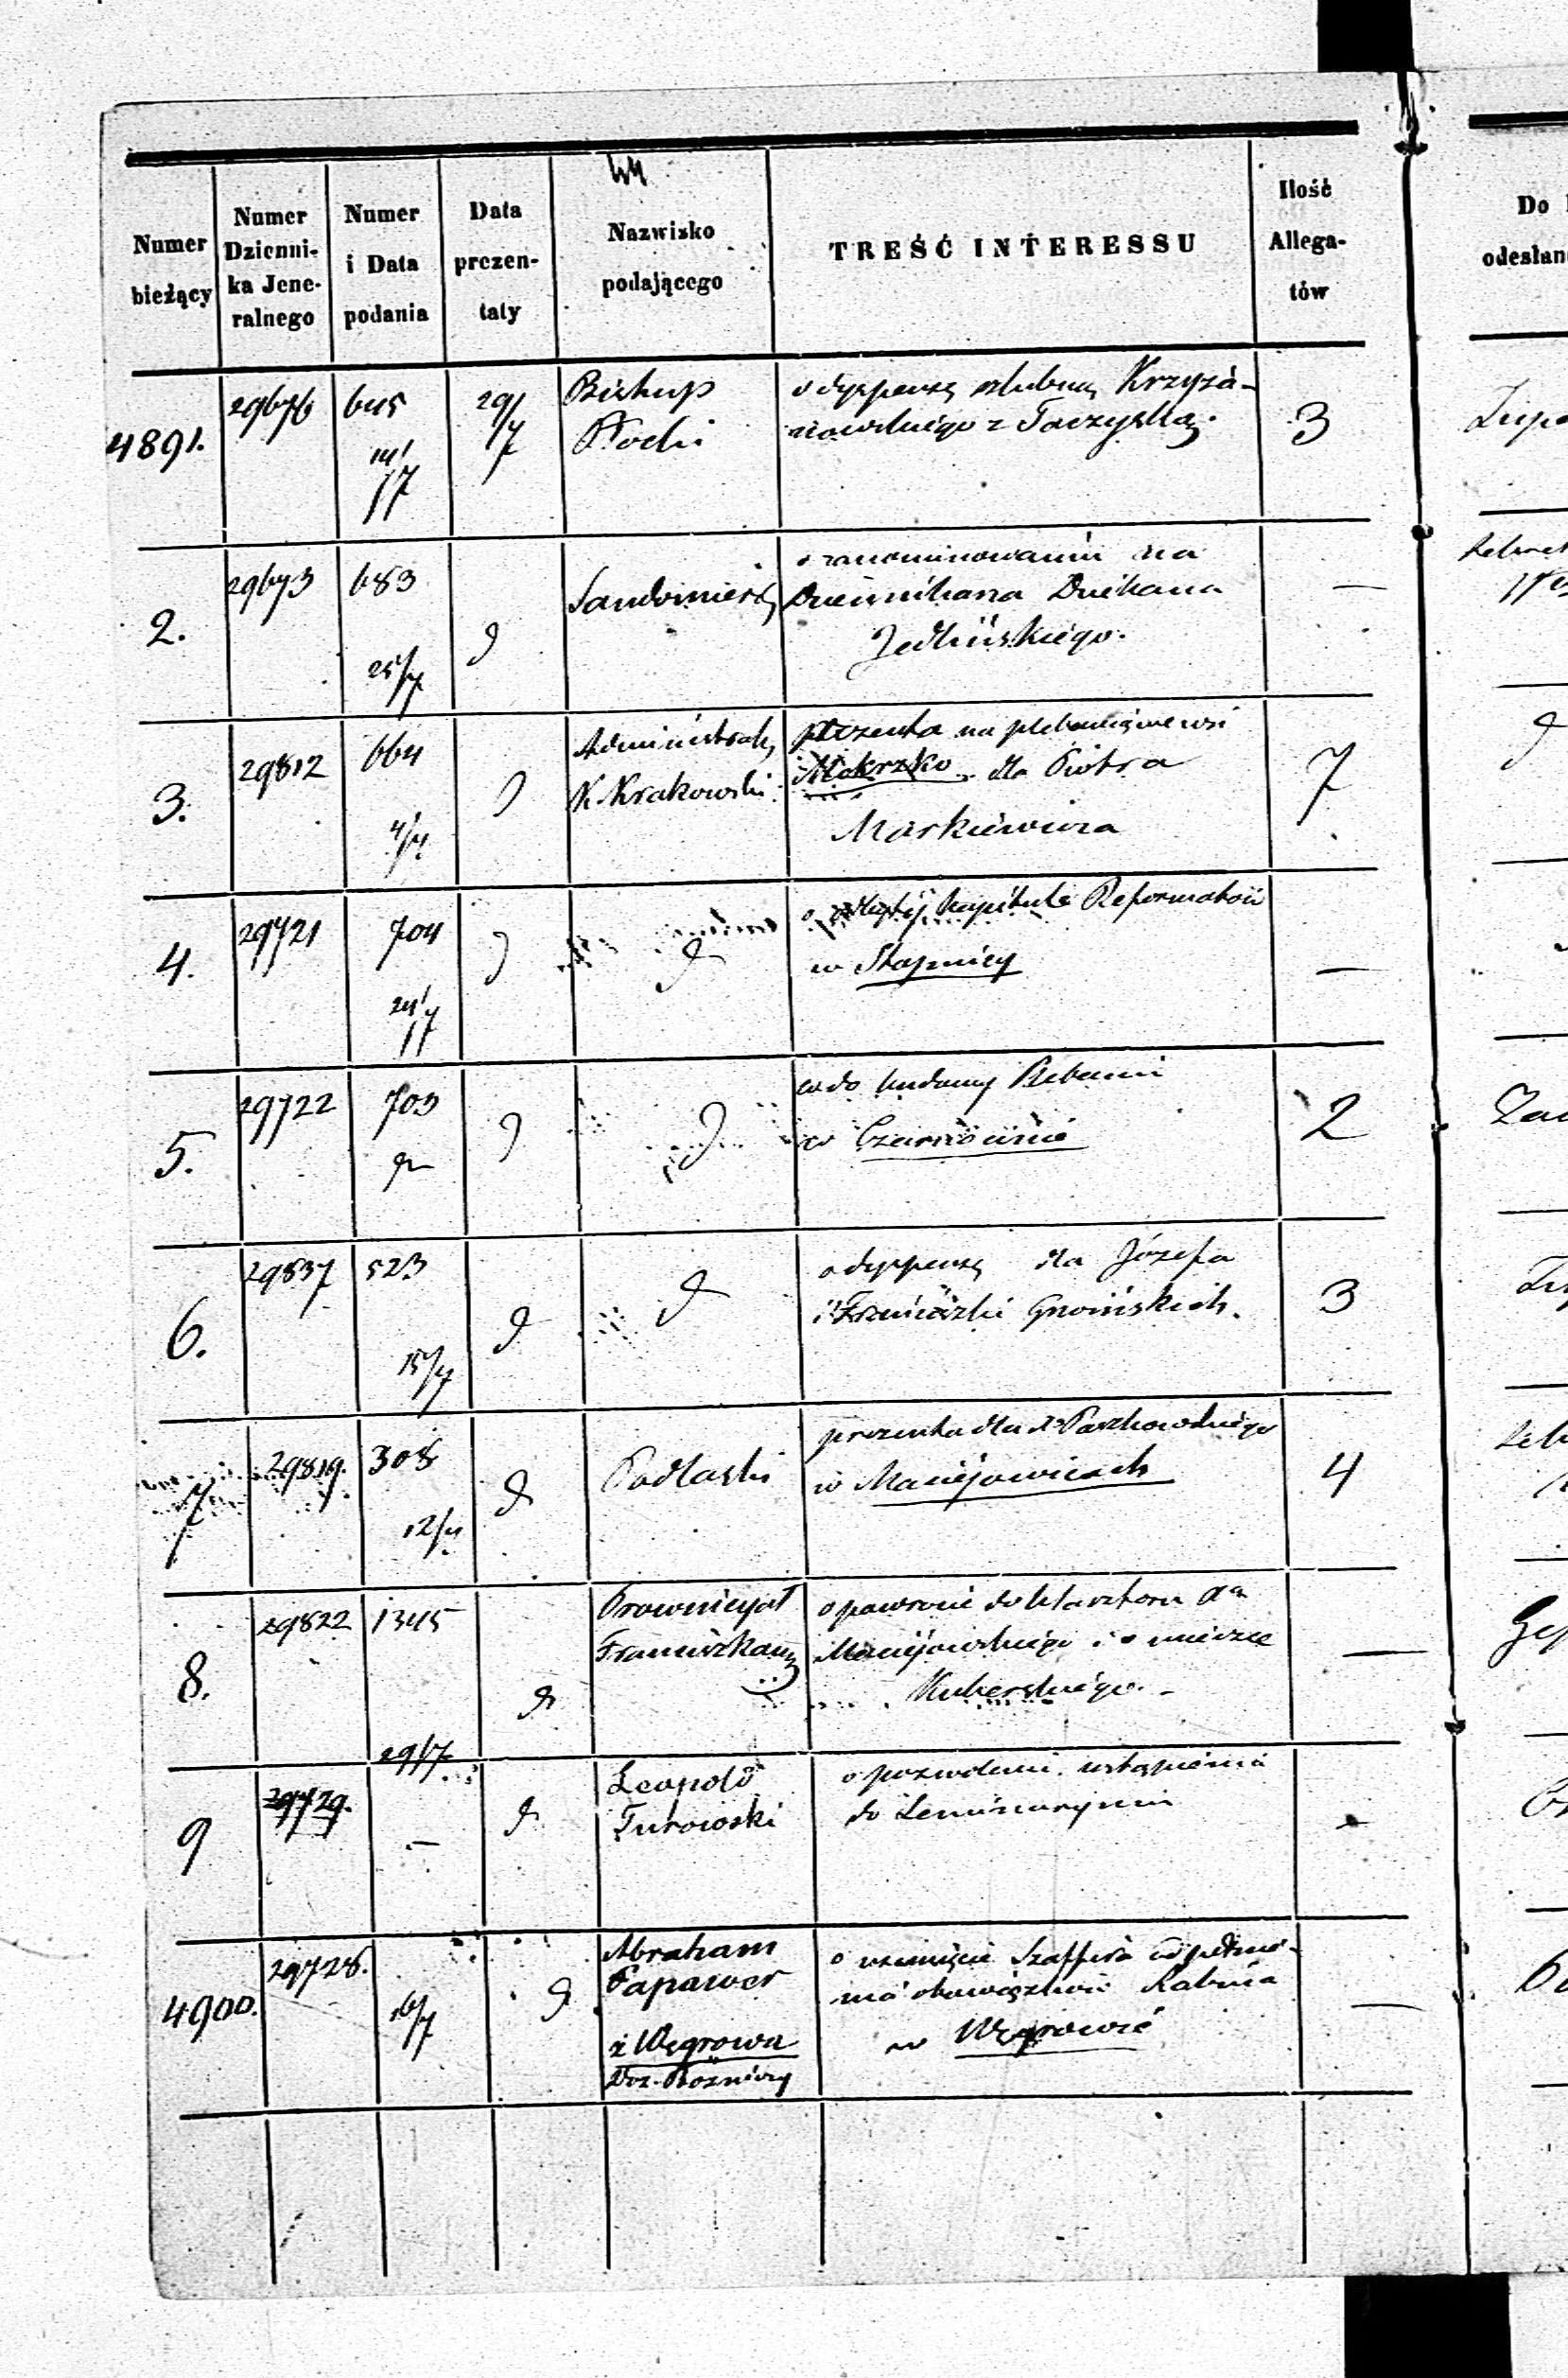 Numer bieżący
Numer Dzienni-ka Jene-ralnego
Numer i Data podania
Data prezen-taty
Nazwisko podającego
TREŚĆ INTERESSU
Ilość Allega-tów
Do
odesłan
4891.
29676
645
29/7
Biskup
Płocki
o dyspensę ślubną Krzyża-
nowskiego z Taczyską.
3
2.
29673
683
25/7
Sandomiersk
o zanominowanie na
Dziekana
Jedlińskiego.
—
3.
29812
664
4/7
Administrat,
K. Krakowski
prezenta na plebanię we wsi
Mokrzko dla Piotra
Markiewicza
7
4.
29721
704
24/7
o odbytej kapitule Reformatów
w Stopnicy
—
5.
29722
703
co do budowy Plebanii
w Czarnocinie
2
6.
29837
523
15/7
o dyspensę dla Józefa
i Franciszki Gnoińskich.
3
7
29819.
308
12/7
Podlaski
prezenta dla Xa Paszkowskiego
w Maciejowicach
4
8.
29822
1345
29/7
Prowincyał
Franciszkanów
o powrocie do klasztoru Xa
Maciejowskiego i o
Kuberskiego.
—
9
29729.
—
Leopold
Turowski
o pozwolenie wstąpienia
do Seminaryum
4900.
29728.
16/7
Abraham
Papawer
z Węgrowa
o usunięcie Szaffira od pełnie-
nia obowiązków Rabina
w Węgrowie
—